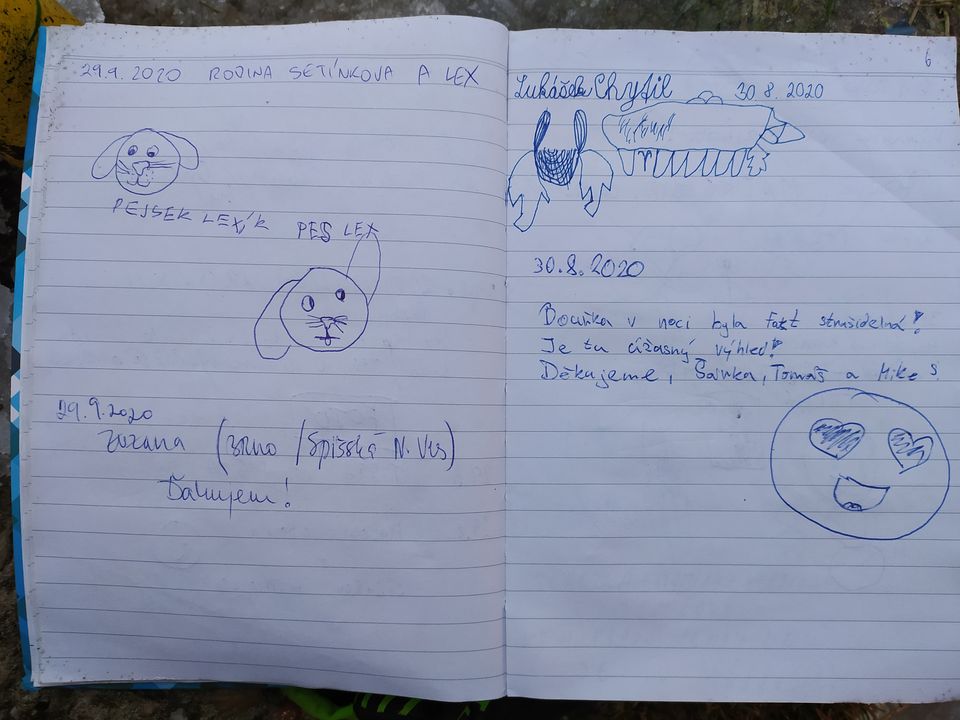 29.9.2020 RODINA SETÍNKOVA A LEX
PEJSEK LEXÍK
PES LEX
29.9.2020
Zuzana (BRNO / Spišská N. Ves)
Ďakujem!
6
Lukášek Chytil 30 8. 2020
30.8.2020
v noci byla fakt strašidelná!
Je tu úžasný výhled!
Děkujeme, Tomáš a Mike